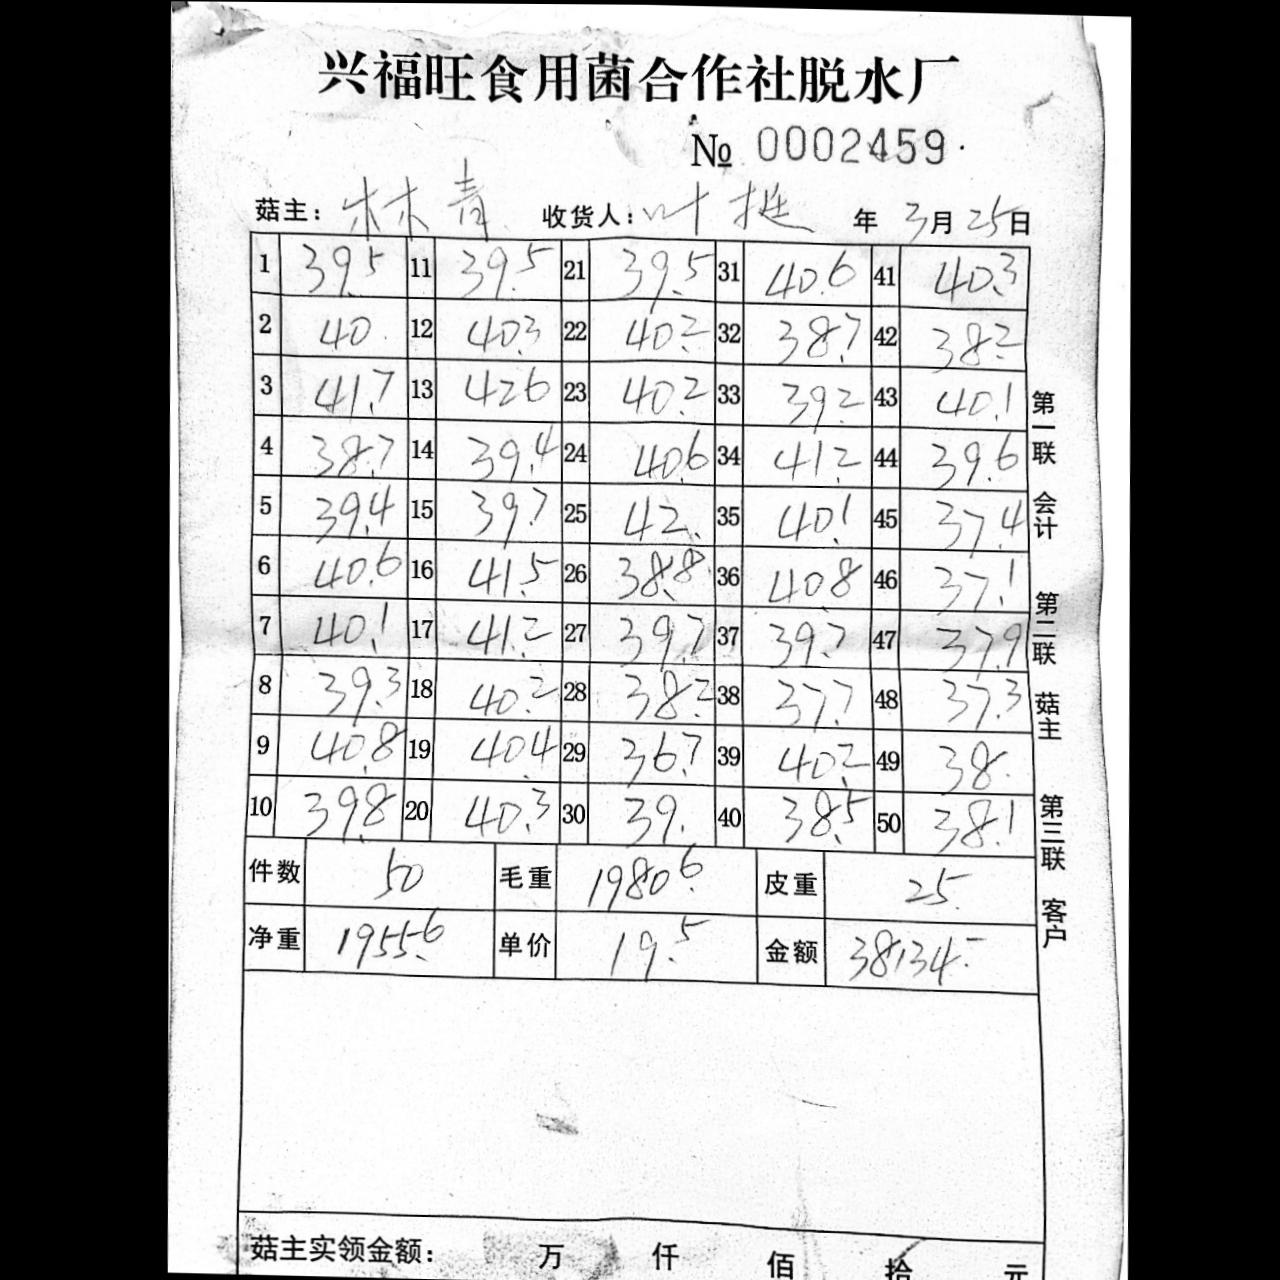 兴福旺食用菌合作社脱水厂
№ 0002459
菇主: 林青 收货人: 叶挺 年 3月25日
1 39.5 11 39.5 21 39.5 31 40.6 41 40.3
2 40. 12 40.3 22 40.2 32 38.7 42 38.2
3 41.7 13 42.6 23 40.2 33 39.2 43 40.1
4 38.7 14 39.4 24 40.6 34 41.2 44 39.6
5 39.4 15 39.7 25 42. 35 40.1 45 37.4
6 40.6 16 41.5 26 38.8 36 40.8 46 37.1
7 40.1 17 41.2 27 39.7 37 39.7 47 37.9
8 39.3 18 40.2 28 38.2 38 37.7 48 37.3
9 40.8 19 40.4 29 36.7 39 40.2 49 38.
10 39.8 20 40.3 30 39. 40 38.5 50 38.1
件数 50 毛重 1980.6 皮重 25.
净重 1955.6 单价 19.5 金额 38134.-
菇主实领金额: 万 仟 佰 拾 元
第一联 会计 第二联 菇主 第三联 客户